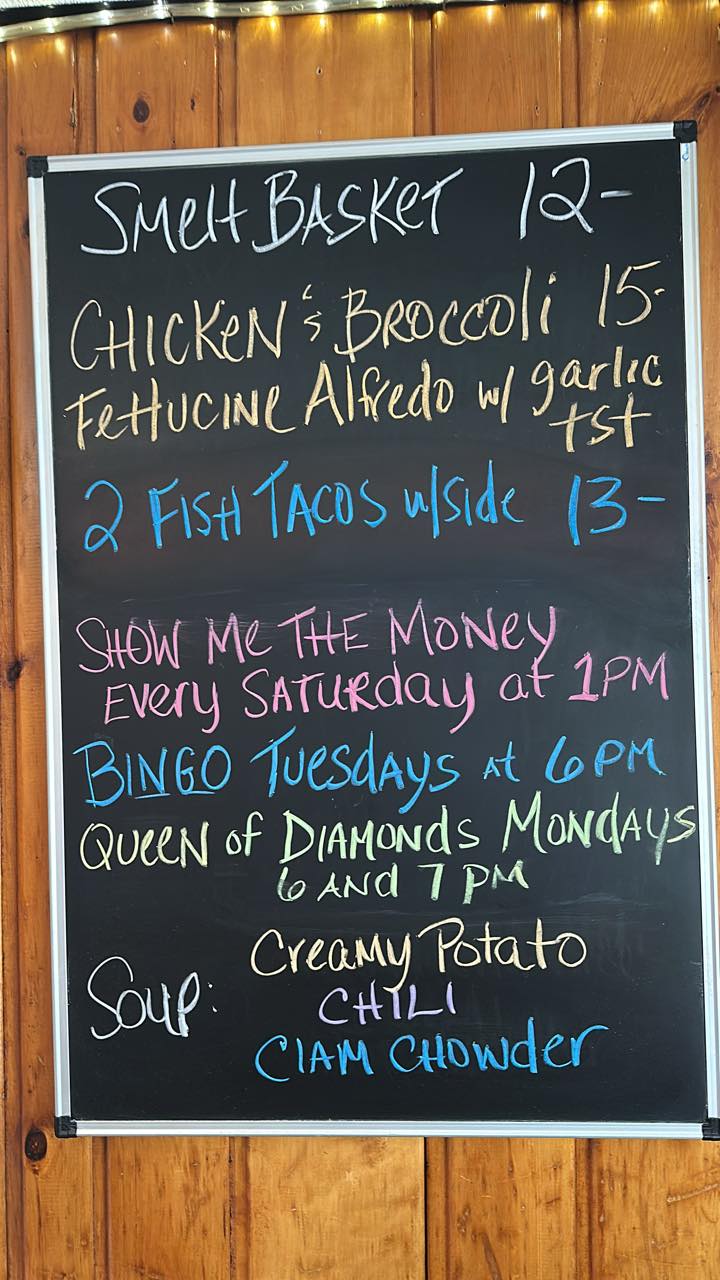 SMelt BASKET 12-
CHICKEN & BROCCOLi 15-
FettUCINE Alfredo w/ garlic
tst
2 FISH TACOS w/side 13-
SHOW Me THE MONeY
EVery SATURday at 1PM
BINGO TUesdAYS At 6PM
QUEEN of DIAMONds MONdAYS
6 AND 7 PM
Creamy Potato
Soup: CHILI
ClAM CHOWder